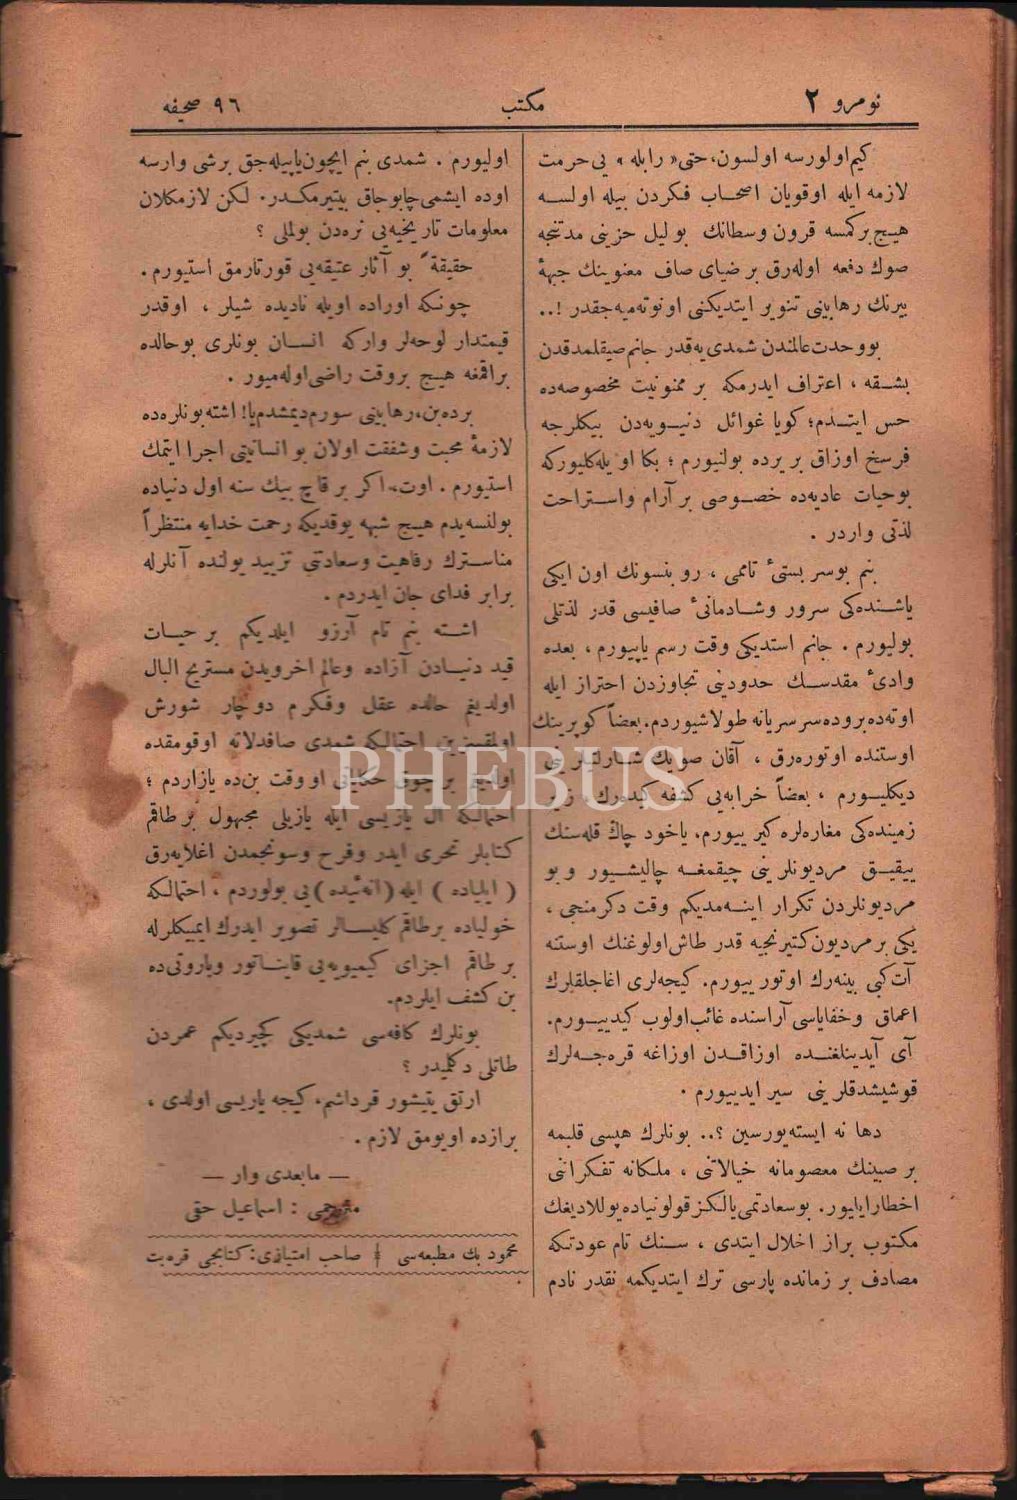 نومرو ٢
مكتب
٩٦ صحيفه
كيم اولورسه اولسون، حتى « رابله » يى حرمت
لازمه ايله اوقويان اصحاب فكردن بيله اولسه
هيچ بركمسه قرون وسطانك بوليل حزينى مدتنجه
صوك دفعه اوله‌رق بر ضياى صاف معنوينك جبههٔ
بيرنك رهابينى تنوير ايتديكنى اونوته‌ميه‌جقدر !..
بووحدت عالمندن شمدى‌يه‌قدر جانم صيقلمدقدن
بشقه ، اعتراف ايدرمكه بر ممنونيت مخصوصه‌ده
حس ايتدم؛ كويا غوائل دنيويه‌دن بيكلرجه
فرسخ اوزاق بر يرده بولنيورم ؛ بكا اويله‌كليوركه
بوحيات عاديه‌ده خصوصى بر آرام واستراحت
لذتى واردر .
بنم بوسربستىٔ تاممى ، روبنسونك اون ايكى
ياشنده‌كى سرور وشادمانىٔ صافيسى قدر لذتلى
بوليورم . جانم استديكى وقت رسم ياپيورم ، بعده
وادىٔ مقدسك حدودينى تجاوزدن احتراز ايله
اوته‌ده بروده سرسريانه طولاشيوردم. بعضاً كوپرينك
اوستنده اوتوره‌رق ، آقان صويك شارلتيسنى
ديكليورم ، بعضاً خرابه‌يى كشفه كيده‌رك، زير
زمينده‌كى مغاره‌لره كيرييورم. ياخود چاك قله‌سنك
ييقيق مرديونلرينى چيقمغه چاليشيور وبو
مرديونلردن تكرار اينه‌مديكم وقت دكرمنجى ،
يكى بر مرديون كتيرنجيه قدر طاش اولوغنك اوستنه
آت كبى بينه‌رك اوتورييورم. كيجه‌لرى اغاجلقلرك
اعماق وخفاياسى آراسنده غائب اولوب كيدييورم.
آى آيدينلغنده اوزاقدن اوزاغه قره‌جه‌لرك
قوشيشدقلرينى سير ايدييورم .
دها نه ايسته‌يورسين ؟.. بونلرك هپسى قلبمه
بر صبينك معصومانه خيالاتنى ، ملكانه تفكراتنى
اخطارايايور. بوسعادتمى يالكز قولونياده يوللاديغك
مكتوب براز اخلال ايتدى ، سنك تام عودتكه
مصادف بر زمانده پارسى ترك ايتديكمه نقدر نادم
اوليورم . شمدى بنم ايچون ياپيله‌جق برشى وارسه
اوده ايشمى چابوجاق بيتيرمكدر. لكن لازمكلان
معلومات تاريخيه‌يى نره‌دن بولملى ؟
حقيقةً بو آثار عتيقه‌يى قورتارمق استيورم .
چونكه اوراده اويله ناديده شيلر ، اوقدر
قيمتدار لوحه‌لر واركه انسان بونلرى بوحالده
براقمغه هيچ بروقت راضى اوله‌ميور .
برده بن، رهابينى سورم ديمشدم يا! اشته بونلره‌ده
لازمهٔ محبت وشفقت اولان بو انسانيتى اجرا ايتمك
استيورم . اوت، اكر بر قاچ بيك سنه اول دنياده
بولنسه‌يدم هيچ شبهه يوقديكه رحمت خدايه منتظراً
مناسترك رفاهيت وسعادتى تزييد يولنده آنلرله
برابر فداى جان ايدردم .
اشته بنم تام آرزو ايلديكم بر حيات
قيد دنيادن آزاده وعالم اخرويدن مستريح البال
اولديغم حالده عقل وفكرم دوچار شورش
اولمقسزين احتمالكه شمدى صافدلانه اوقومقده
اولديغم بر چوق حكاياتى او وقت بن‌ده يازاردم ؛
احتمالكه ال يازيسى ايله يازيلى مجهول بر طاقم
كتابلر تحرى ايدر وفرح وسونجمدن اغلايه‌رق
( ايلياده ) ايله ( انه‌ئيده ) يى بولوردم ، احتمالكه
خولياده بر طاقم كليسالر تصوير ايدرك ايمبيكلرله
بر طاقم اجزاى كيميويه‌يى قايناتور وباروتى‌ده
بن كشف ايلردم.
بونلرك كافه‌سى شمديكى كچيرديكم عمردن
طاتلى دكلميدر ؟
ارتق يتيشور قرداشم، كيجه ياريسى اولدى ،
برازده اويومق لازم .
— مابعدى وار —
مترجمى : اسماعيل حقى
محمود بك مطبعه‌سى
صاحب امتيازى: كتابجى قره‌بت
PHEBUS